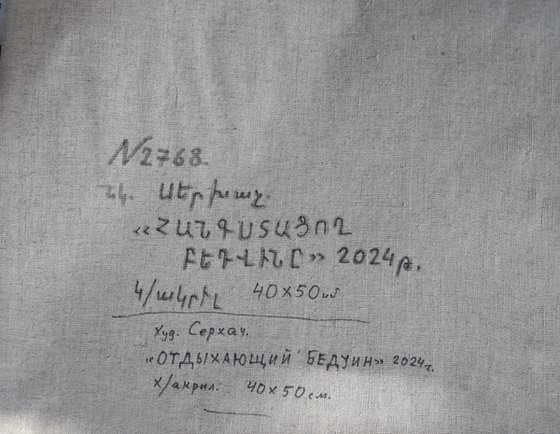 N2768.
նկ. Սերխաչ.
«ՀԱՆԳՍՏԱՑՈՂ
ԲԵԴՎԻՆԸ» 2024թ.
կ/ակրիլ 40x50սմ
худ. Серхач.
«ОТДЫХАЮЩИЙ БЕДУИН» 2024г.
х/акрил. 40x50см.